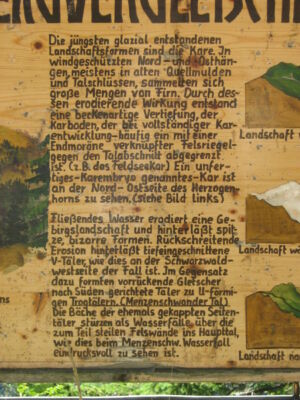 Die jüngsten glazial entstandenen
Landschaftsformen sind die Kare. In
windgeschützten Nord- und Osthän-
gen, meistens in alten Quellmulden
und Talschlüssen, sammelten sich
große Mengen von Firn. Durch des-
sen erodierende Wirkung entstand
eine beckenartige Vertiefung, der
Karboden, der bei vollständiger Kar-
entwicklung - häufig ein mit einer
Endmoräne verknüpfter Felsriegel-
gegen den Talabschnitt abgegrenzt
ist. (z.B. das Feldseekar) Ein unfer-
tiges - Karembryo genanntes - Kar ist
an der Nord - Ostseite des Herzogen-
horns zu sehen. (siehe Bild links)
Fließendes Wasser erodiert eine Ge-
birgslandschaft und hinterläßt spit-
ze, bizarre Formen. Rückschreitende
Erosion hinterläßt tiefeingeschnittene
V-Täler, wie dies an der Schwarzwald-
westseite der Fall ist. Im Gegensatz
dazu formten vorrückende Gletscher
nach Süden gerichtete Täler zu U-förmi-
gen Trogtälern. (Menzenschwander Tal)
Die Bäche der ehemals gekappten Seiten-
täler stürzen als Wasserfälle, über die
zum Teil steilen Felswände ins Haupttal,
wie dies beim Menzenschw. Wasserfall
eindrucksvoll zu sehen ist.
Landschaft
Landschaft wä
Landschaft na